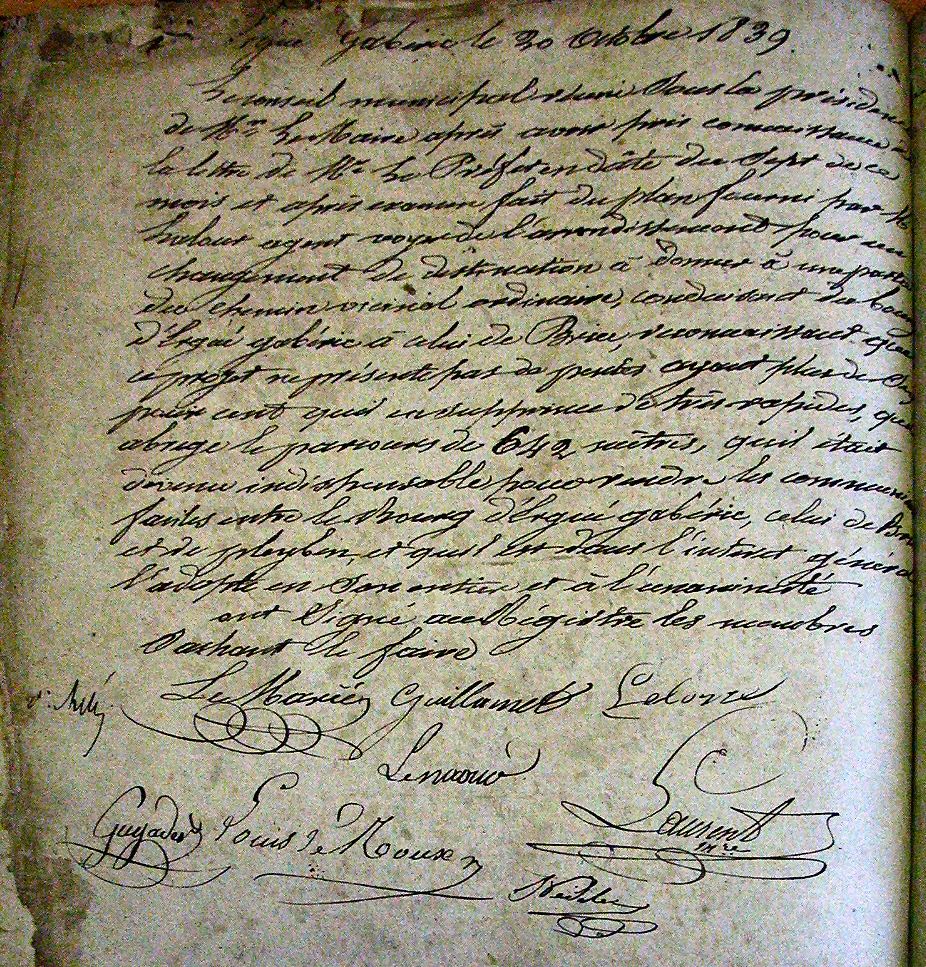 Ergué gabéric le 20 Octobre 1839.
Le conseil municipal réuni Sous la présidence
de Mr. Le Maire après avoir pris connaissance de
la lettre de Mr Le Préfet en dâte du Sept de ce
mois et après examen fait du plan fourni par Mr
agent voyer de l'arrondissement pour un
changement de destination à donner à une partie
du chemin vicinal ordinaire, conduisant du bourg
d'Ergué gabéric à celui de Briec, reconnaissant que
ce projet ne présente pas de pentes ayant plus de
pour cent qu'il en supprime de très rapides, qu'il
abrege le parcours de 642 mètres, qu'il était
devenu indispensable pour rendre les communi
faciles entre le Bourg d'Ergué gabéric, celui de Bri
et de pleyben, et qu'il est dans l'interet général
l'adopte en Son entier et à l'unanimité
ont Signé au Régistre les membres
Sachant le faire
Le Mariée Guillamet Lelons
Lenaoué
Laurent
mre
Guyader Louis Le Roux